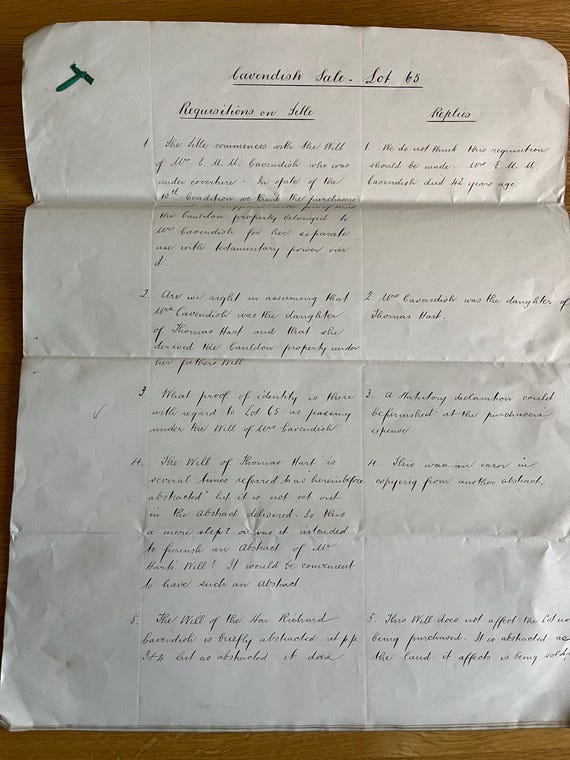 Cavendish Sale - Lot 65
Requisitions on Title
Replies
1 The Title commences with the Will
of Mrs E. M. M. Cavendish who was
under coverture. In spite of the
10th Condition we think the purchasers
the Cauldon property belonged to
Mrs Cavendish for her separate
use with testamentary power over
it.
1. We do not think this requisition
should be made. Mrs E. M. M.
Cavendish died 42 years ago.
2. Are we right in assuming that
Mrs Cavendish was the daughter
of Thomas Hart and that she
derived the Cauldon property under
her father's Will.
2. Mrs Cavendish was the daughter of
Thomas Hart.
3. What proof of identity is there
with regard to Lot 65 as passing
under the Will of Mrs Cavendish
3. A Statutory declaration could
be furnished at the purchasers
expense.
4. The Will of Thomas Hart is
several times referred to as "hereinbefore
abstracted" but it is not set out
in the Abstract delivered. Is this
a mere slip? or was it intended
to furnish an Abstract of Mr
Hart's Will? It would be convenient
to have such an Abstract.
4. This was an error in
copying from another abstract.
5. The Will of the Hon Richard
Cavendish is briefly abstracted at p.p.
3+4 but as abstracted it does
5. This Will does not affect the Lot now
being purchased. It is abstracted as
the land it affects is being sold